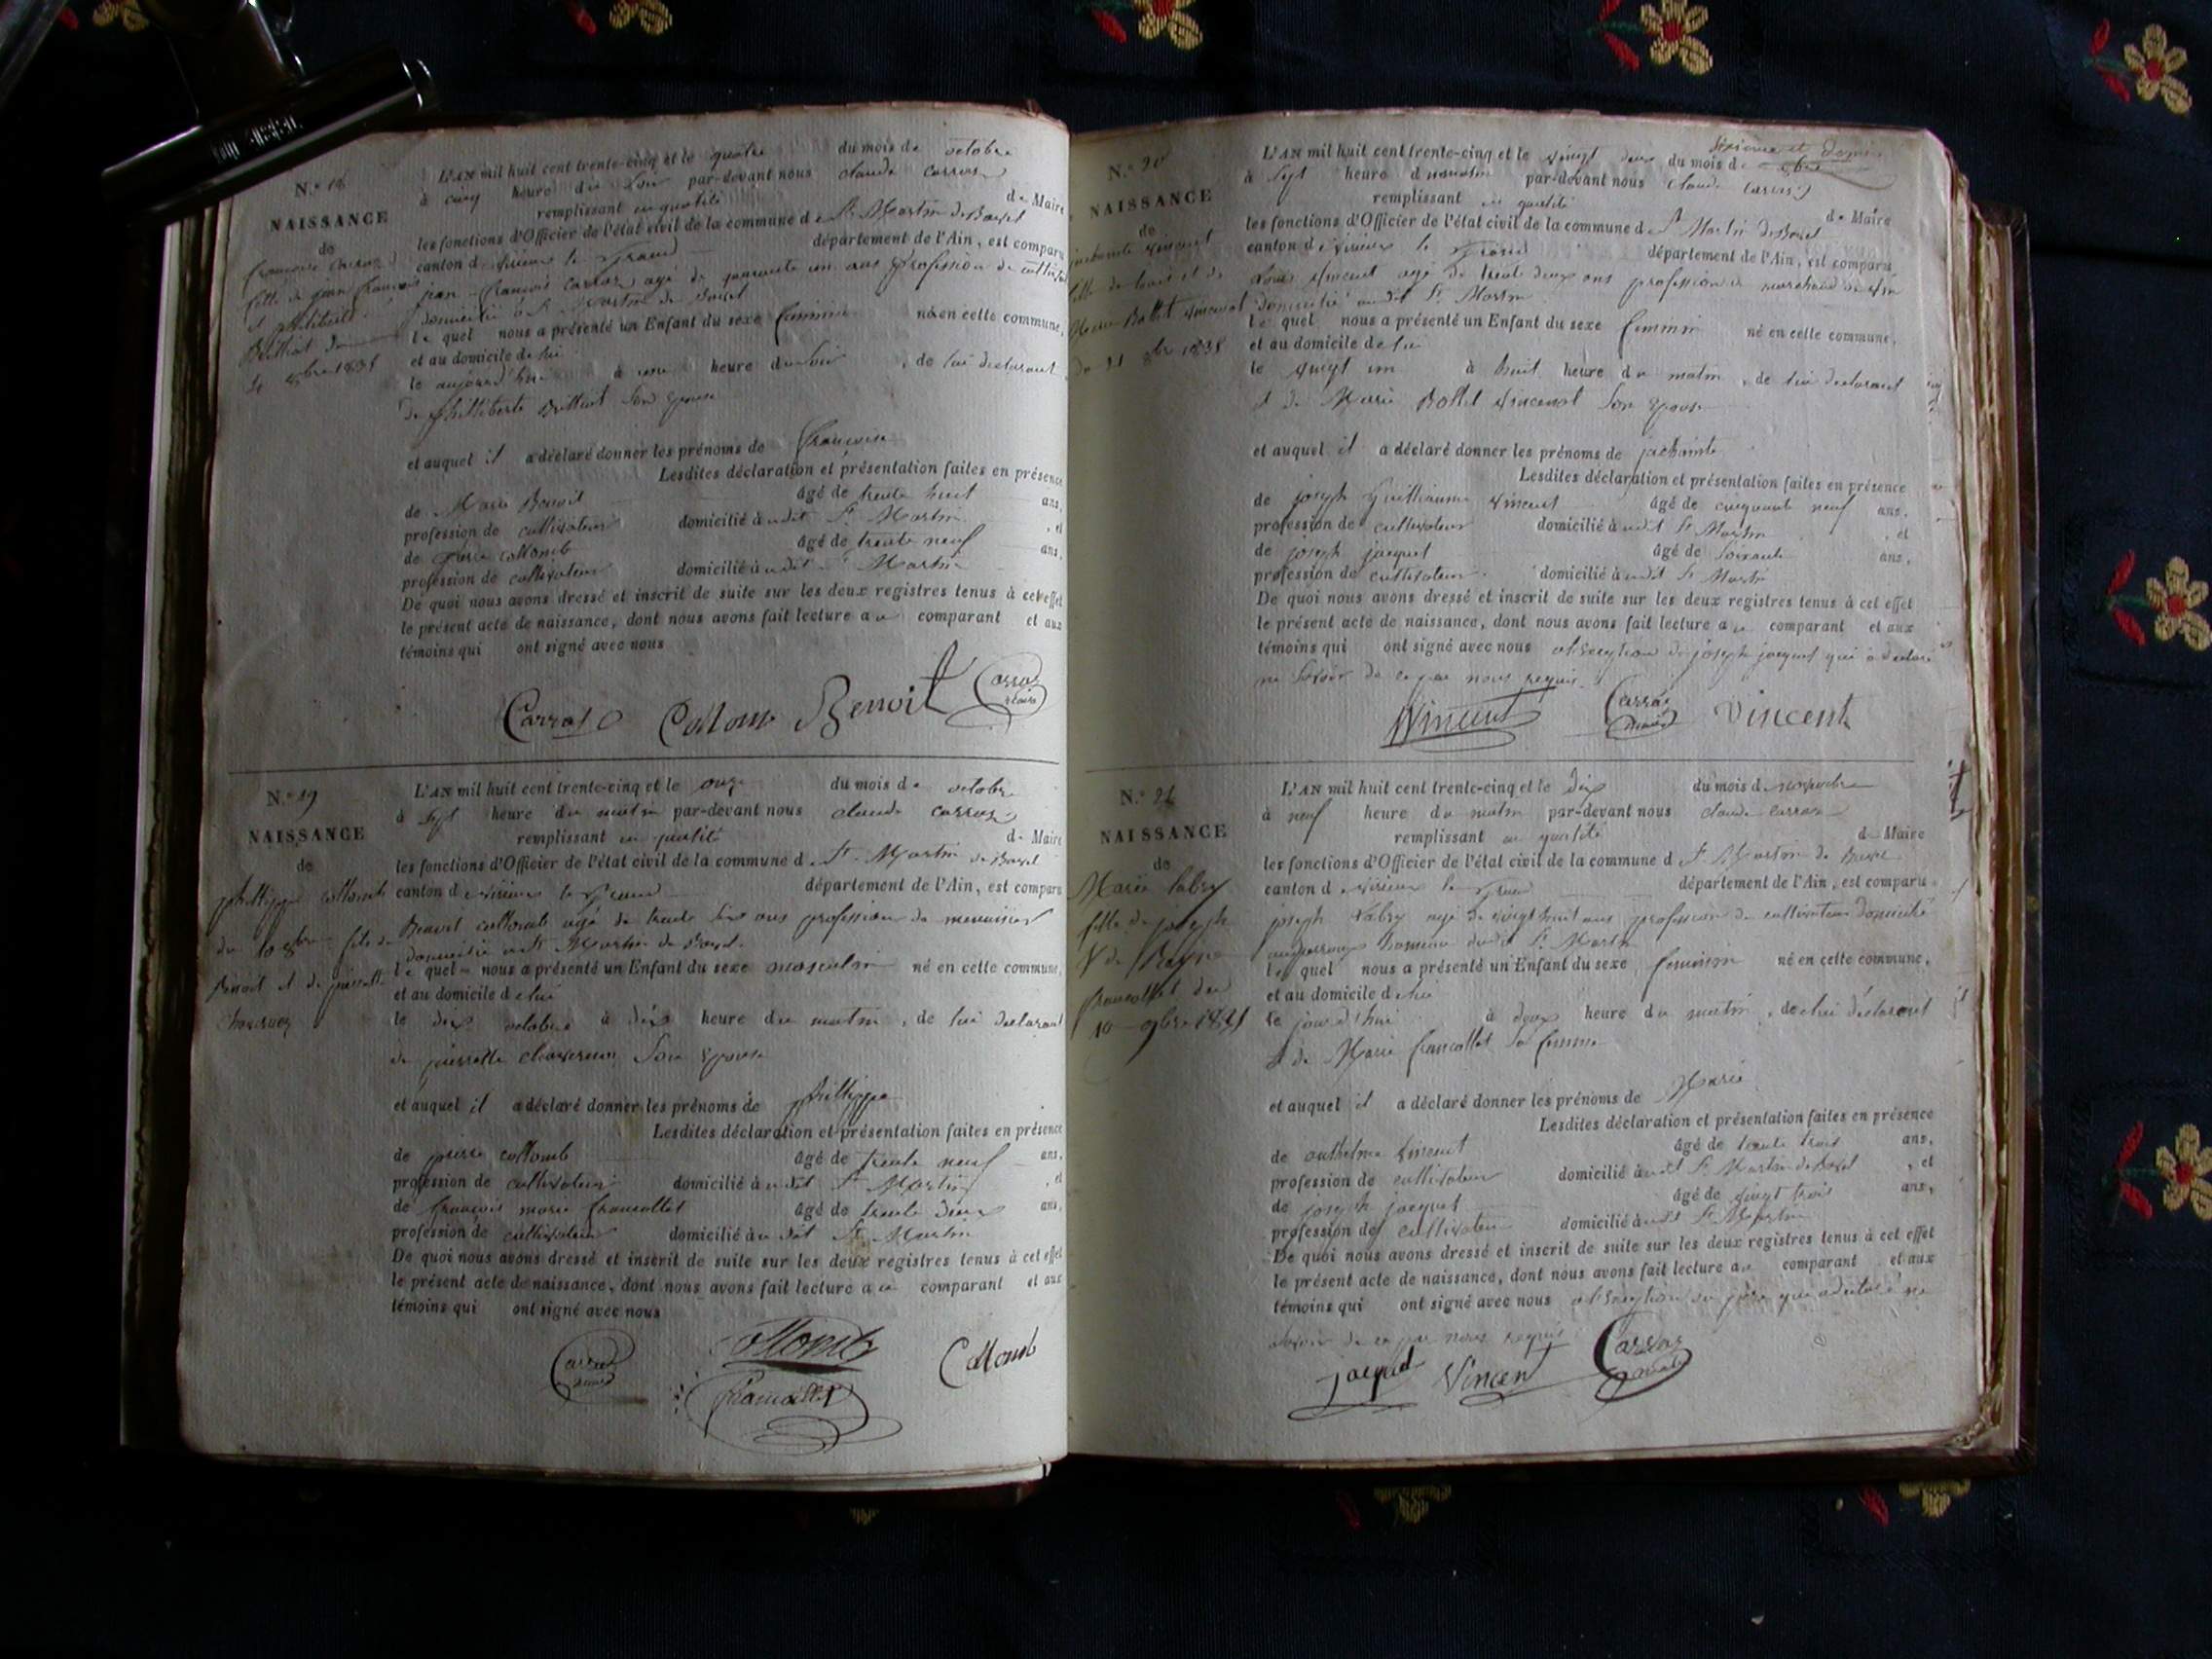 N.o 18
NAISSANCE
de
françoise Carraz
fille de jean françois
et philiberte
Billiot du
4 8bre 1835
L'AN mil huit cent trente-cinq et le quatre du mois de octobre
à cinq heure du soir par-devant nous claude carraz
remplissant en qualité de Maire
les fonctions d'Officier de l'état civil de la commune de St Martin de Bavel
canton de virieux le grand département de l'Ain, est comparu
jean-françois carraz agé de quarante un ans profession de cultivateur
domicilié à St Martin de Bavel
le quel nous a présenté un Enfant du sexe feminin né en cette commune,
et au domicile de lui
le aujourd'hui à une heure du soir, de lui declarant
de philiberte Billiot son epouse
et auquel il a déclaré donner les prénoms de françoise
Lesdites déclaration et présentation faites en présence
de Marie Benoit âgé de trente huit ans,
profession de cultivateur domicilié à udit St Martin, et
de pierre collomb âgé de trente neuf ans,
profession de cultivateur domicilié à udit St Martin
De quoi nous avons dressé et inscrit de suite sur les deux registres tenus à cet effet
le présent acte de naissance, dont nous avons fait lecture au comparant et aux
témoins qui ont signé avec nous
Carraz Collomb Benoit Carraz
maire
N.o 19
NAISSANCE
de
phillippe collomb
du 10 8bre fils de
Benoit et de pierrette
L'AN mil huit cent trente-cinq et le onze du mois de octobre
à sept heure du matin par-devant nous claude carraz
remplissant en qualité de Maire
les fonctions d'Officier de l'état civil de la commune de St Martin de Bavel
canton de virieux le grand département de l'Ain, est comparu
Benoit collomb agé de trente six ans profession de menuisier
domicilié à St Martin de Bavel
le quel nous a présenté un Enfant du sexe masculin né en cette commune,
et au domicile de lui
le dix octobre à dix heure du matin, de lui declarant
de pierrette son epouse
et auquel il a déclaré donner les prénoms de phillippe
Lesdites déclaration et présentation faites en présence
de pierre collomb âgé de trente neuf ans,
profession de cultivateur domicilié à udit St Martin, et
de françois marie francollet âgé de trente deux ans,
profession de cultivateur domicilié à udit St Martin
De quoi nous avons dressé et inscrit de suite sur les deux registres tenus à cet effet
le présent acte de naissance, dont nous avons fait lecture au comparant et aux
témoins qui ont signé avec nous
Carraz maire Collomb Collomb
francollet
N.o 20
NAISSANCE
de
jachainte vincent
fille de Louis et de
Marie Bollet vincent
du 21 8bre 1835
L'AN mil huit cent trente-cinq et le vingt deux du mois de 8bre
à sept heure du matin par-devant nous claude carraz
remplissant en qualité de Maire
les fonctions d'Officier de l'état civil de la commune de St Martin de Bavel
canton de virieux le grand département de l'Ain, est comparu
Louis vincent agé de trente deux ans profession de marchand de vin
domicilié audit St Martin
le quel nous a présenté un Enfant du sexe feminin né en cette commune,
et au domicile de lui
le vingt un à huit heure du matin, de lui declarant
et de Marie Bollet vincent son epouse
et auquel il a déclaré donner les prénoms de jachainte
Lesdites déclaration et présentation faites en présence
de joseph Guilliaume vincent âgé de cinquante neuf ans,
profession de cultivateur domicilié à udit St Martin, et
de joseph jacquet âgé de soixante ans,
profession de cultivateur domicilié à udit St Martin
De quoi nous avons dressé et inscrit de suite sur les deux registres tenus à cet effet
le présent acte de naissance, dont nous avons fait lecture au comparant et aux
témoins qui ont signé avec nous a l'exception de joseph jacquet qui a declaré
ne savoir de ce par nous requis
Vincent Carraz maire Vincent
N.o 21
NAISSANCE
de
Marie labry
fille de joseph
& de
francollet du
10 9bre 1835
L'AN mil huit cent trente-cinq et le dix du mois de novembre
à neuf heure du matin par-devant nous claude carraz
remplissant en qualité de Maire
les fonctions d'Officier de l'état civil de la commune de St Martin de Bavel
canton de virieux le grand département de l'Ain, est comparu
joseph Labry agé de vingt huit ans profession de cultivateur domicilié
hameau dudit St Martin
le quel nous a présenté un Enfant du sexe feminin né en cette commune,
et au domicile de lui
le jourd'hui à deux heure du matin, de lui déclarant
& de Marie francollet sa femme
et auquel il a déclaré donner les prénoms de Marie
Lesdites déclaration et présentation faites en présence
de anthelme vincent âgé de trente trois ans,
profession de cultivateur domicilié à udit St Martin de Bavel, et
de joseph jacquet âgé de vingt trois ans,
profession de cultivateur domicilié à udit St Martin
De quoi nous avons dressé et inscrit de suite sur les deux registres tenus à cet effet
le présent acte de naissance, dont nous avons fait lecture au comparant et aux
témoins qui ont signé avec nous a l'exception du père qui a declaré ne
savoir de ce par nous requis
jacquet Vincent Carraz maire